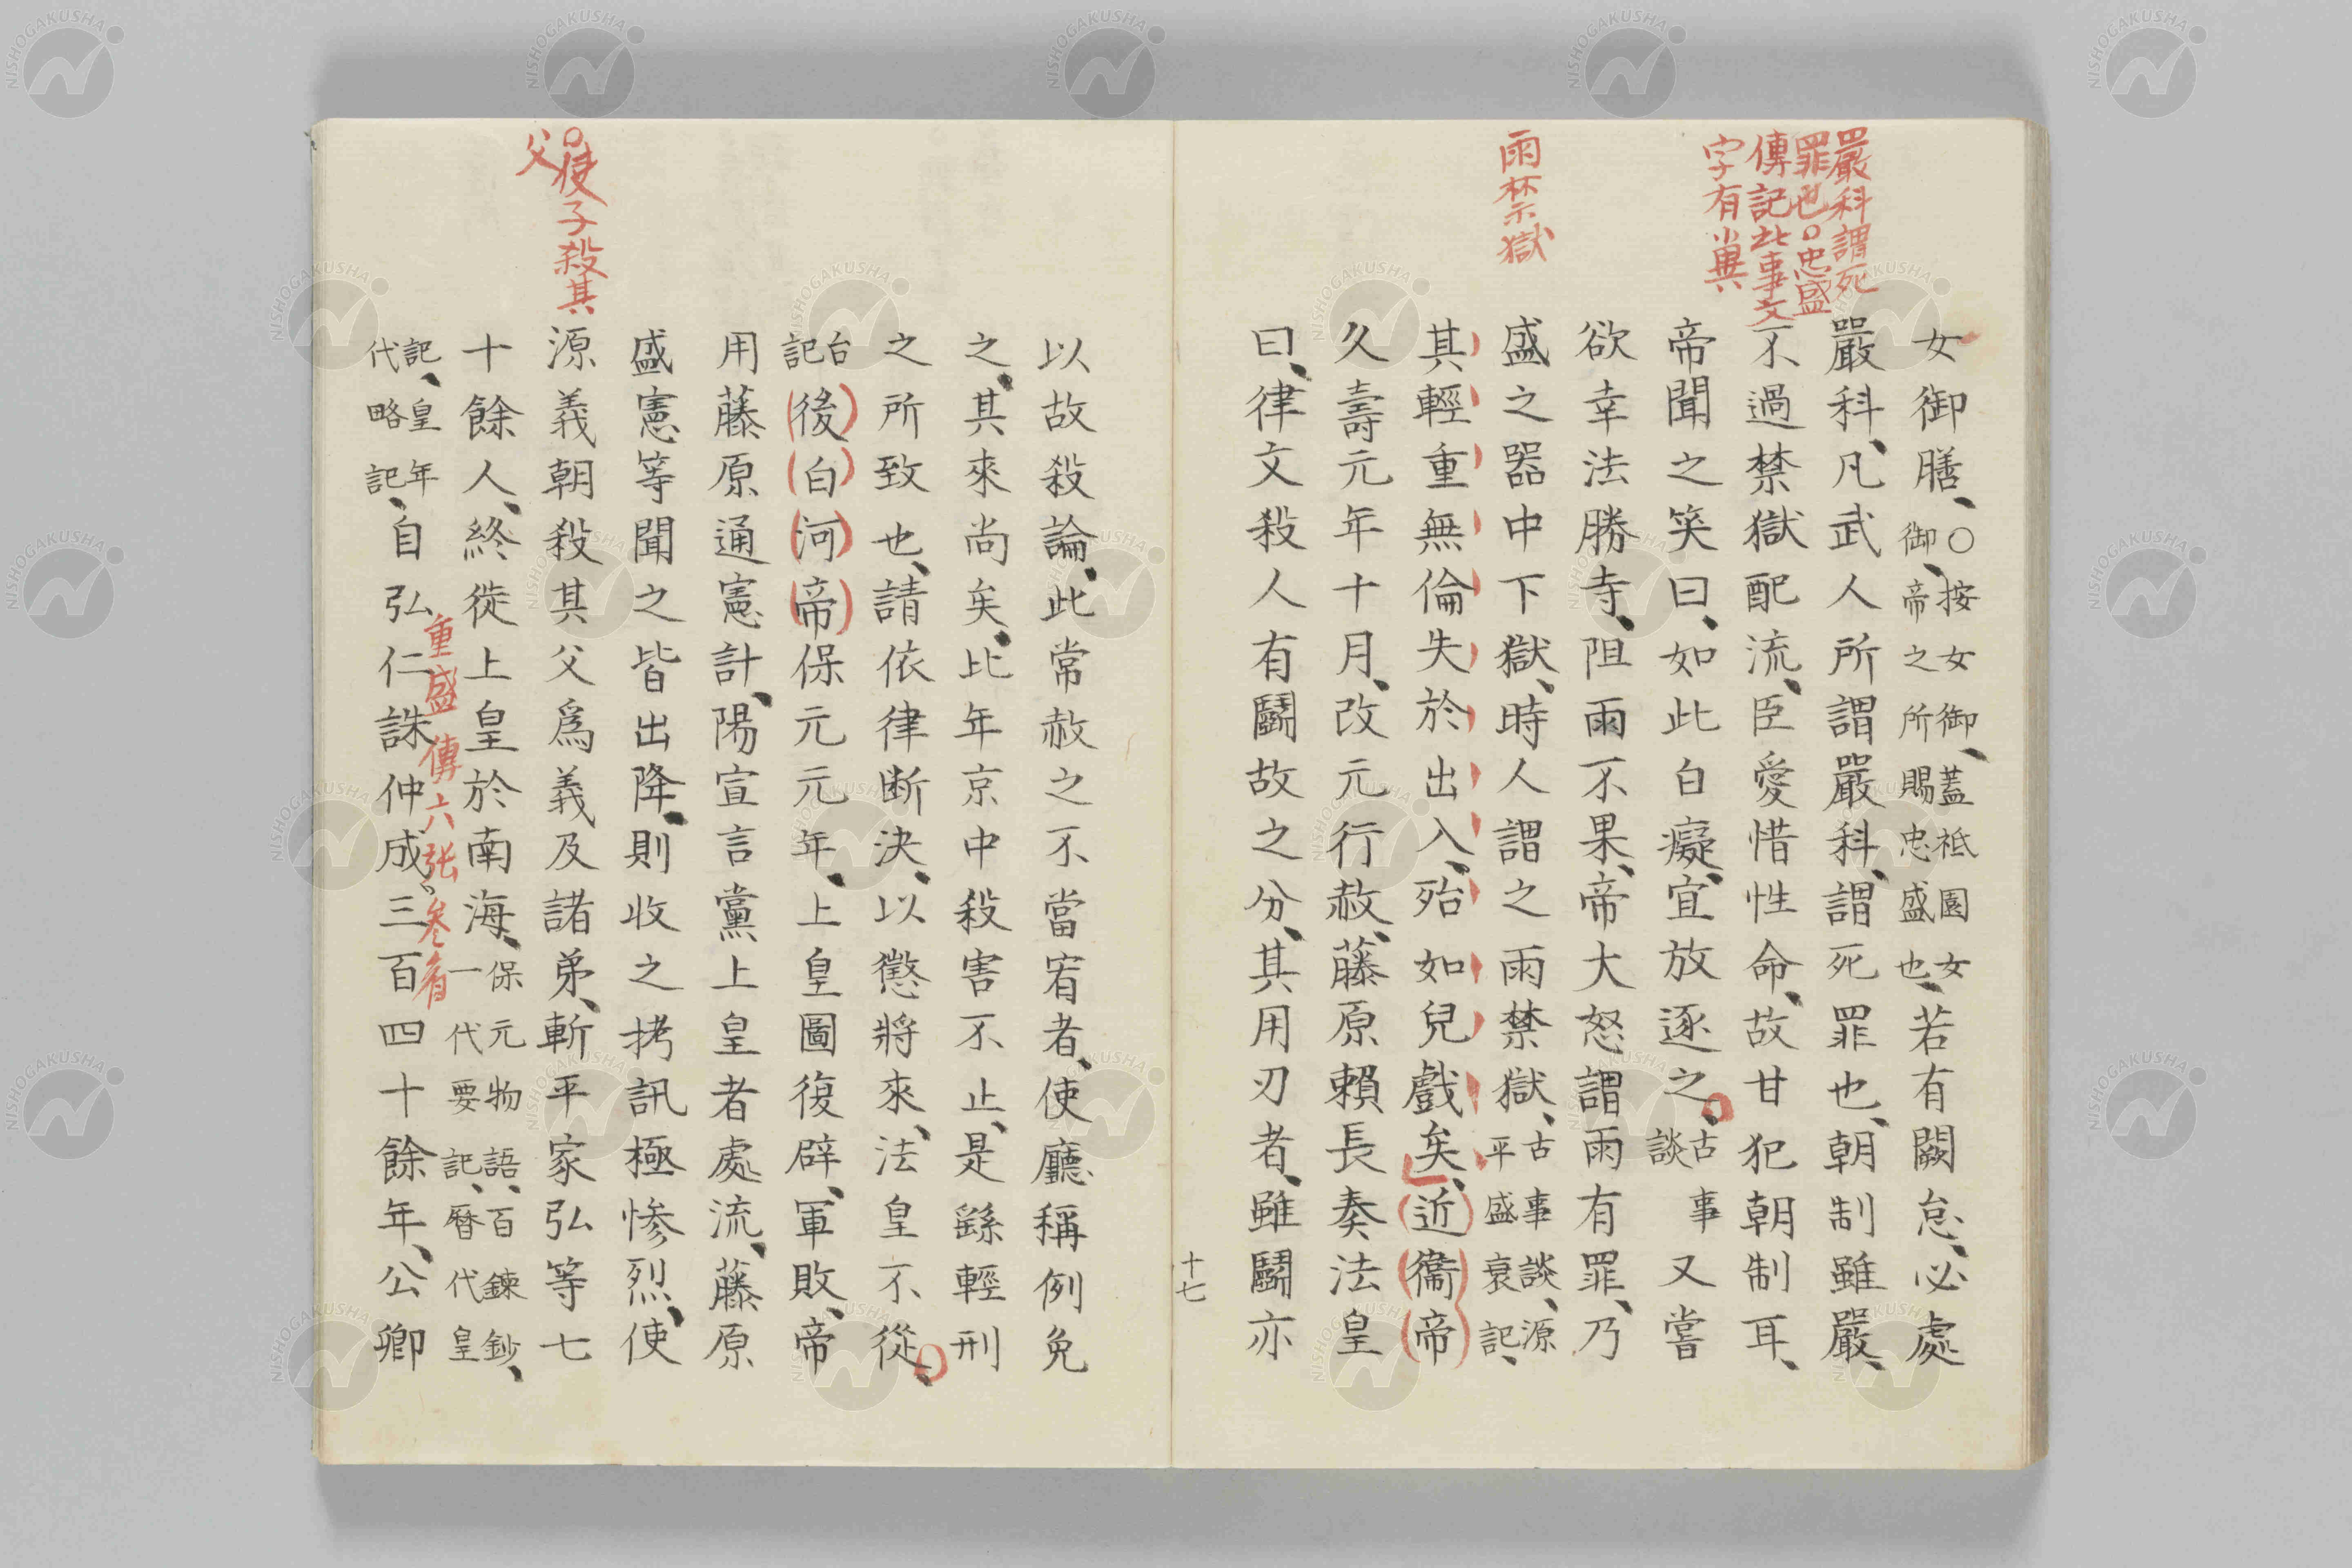 嚴科謂死
罪也○忠盛
傳記此事文
字有小異
雨禁獄
女御膳、○按女御、蓋祗園女御、帝之所賜忠盛也、若有闕怠、必處
嚴科、凡武人所謂嚴科、謂死罪也、朝制雖嚴、
不過禁獄配流、臣愛惜性命、故甘犯朝制耳、
帝聞之笑曰、如此白癡、宜放逐之、古事談又嘗
欲幸法勝寺、阻雨不果、帝大怒謂雨有罪、乃
盛之器中下獄、時人謂之雨禁獄、古事談、源平盛衰記、
其輕重無倫失於出入、殆如兒戲矣、近衞帝
久壽元年十月、改元行赦、藤原賴長奏法皇
曰、律文殺人有鬭故之分、其用刃者、雖鬭亦
十七
○使子殺其
父
以故殺論、此常赦之不當宥者、使廳稱例免
之、其來尚矣、比年京中殺害不止、是繇輕刑
之所致也、請依律斷決、以懲將來、法皇不從、
台記後白河帝保元元年、上皇圖復辟、軍敗、帝
用藤原通憲計、陽宣言黨上皇者處流、藤原
盛憲等聞之皆出降、則收之拷訊極慘烈、使
源義朝殺其父爲義及諸弟、斬平家弘等七
十餘人、終徙上皇於南海、保元物語、百鍊鈔、一代要記、曆代皇
重盛傳六張、參看
記、皇年代略記、自弘仁誅仲成三百四十餘年、公卿